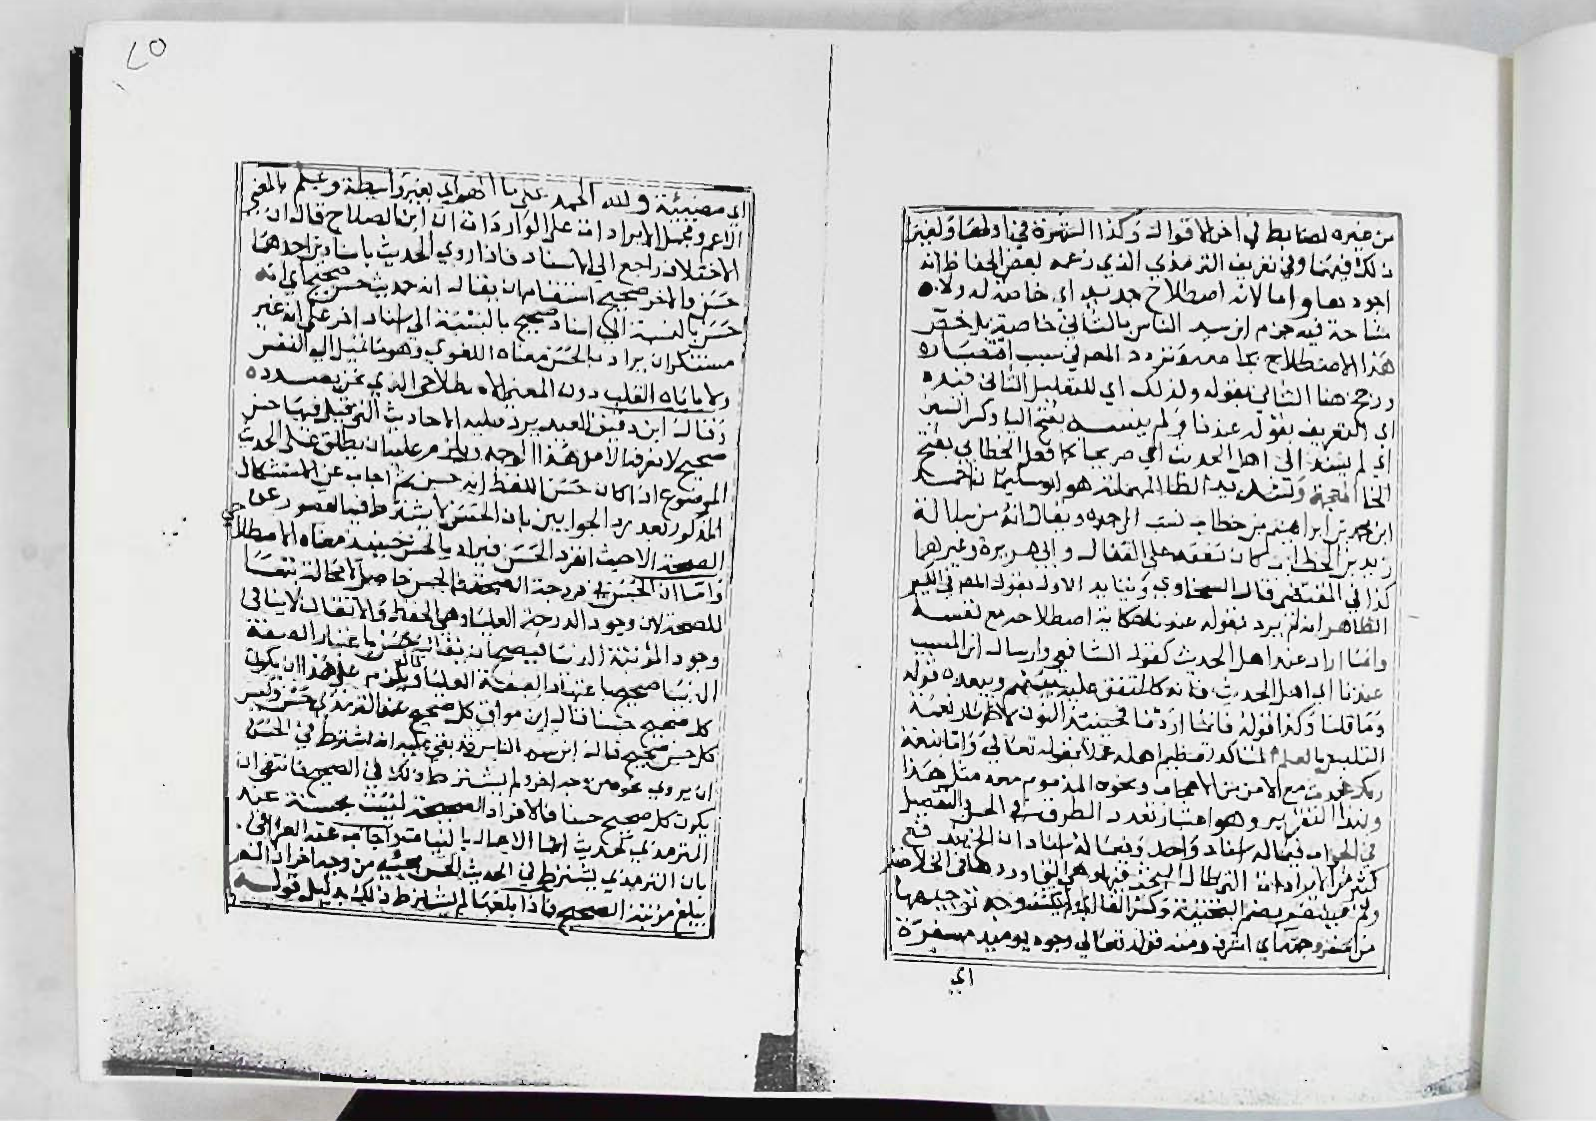 من غيره لضابط في اخر الاقوال وكذا الشهرة في اولها ولغير
ذلك فيهما وفي تعريف الترمذي الذي زعمه بعض الحفاظ انه
اجود بها واما لانه اصطلاح جديد اي خاص له ولا
مشاحة فيه جزم ابن سيد الناس بالثاني خاصة بل خص
هذا الاصطلاح بجامعه وتردد المصنف في سبب اقتصاره
ورجح هنا الثاني بقوله ولذلك اي للتعليل الثاني قيده
اي التعريف بقوله عندنا ولم ينسبه بفتح اليا وكسر السين
اي لم يسنده الى اهل الحديث اي صريحا كما فعل الخطابي بفتح
الخا المعجمة وتشديد الطا المهملة هو ابو سليمان احمد
ابن محمد بن ابراهيم بن خطاب نسب الى جده ويقال انه من سلالة
زيد بن الخطاب كان تفقه على القفال وابي هريرة وغيرهما
كذا في قال السخاوي ويتايد الاول بقول المصنف في
الظاهر انه لم يرد بقوله عندنا حكاية اصطلاحه مع نفسه
وانما اراد عند اهل الحديث كقول الشافعي وارسال ابن المسيب
عندنا اي اهل الحديث فانه كالمتفق عليه بينهم ويبعده قوله
وما قلنا وكذا قوله فانما اردنا فحينئذ النون لاظهار نعمة
التلبس بالعلم المتاكد تعظيم اهله عملا بقوله تعالى واما بنعمة
ربك فحدث مع الامن من الاعجاب ونحوه المذموم معه مثل هذا
وبهذا التقرير وهو اعتبار تعدد الطرق في الحسن والتفصيل
في الجواب فيما له اسناد واحد وفيما له اسنادان اندفع
كثير من الايرادات التي طال البحث فيها وهي التي اوردها في الخلاصة
ولم يضم التحتية وكسر الفا اي لم يكشف وجه توجيهها
من اسفر وجهه اي اشرق ومنه قوله تعالى وجوه يوميذ مسفرة
اي
٥٧
اي مضيئة ولله الحمد على ما الهم اي بغير واسطة وعلم بالمعنى
الاعم ومجمل الايرادات على الواردات ان ابن الصلاح قال ان
الاختلاف راجع الى الاسناد فاذا روي الحديث باسنادين احدهما
حسن والاخر صحيح استقام ان يقال انه حديث حسن صحيح اي انه
حسن بالنسبة الى اسناد صحيح بالنسبة الى اسناد اخر على انه غير
مستنكر ان يراد بالحسن معناه اللغوي وهو ما تميل اليه النفس
ولا ياباه القلب دون المعنى الاصطلاحي الذي نحن بصدده
وقال ابن دقيق العيد يرد عليه الاحاديث التي قيل فيها حسن
صحيح لا نعرفه الا من هذا الوجه ويلزم عليه ان يطلق على الحديث
الموضوع اذا كان حسن اللفظ انه حسن ثم اجاب عن الاستشكال
المذكور بعد رد الجوابين بان الحسن لا يشترط فيه القصور عن
الصحة الا حيث انفرد الحسن فيراد بالحسن حينئذ معناه الاصطلاحي
واما ان ارتفع الى درجة الصحة فالحسن حاصل لا محالة تبعا
للصحة لان وجود الدرجة العليا وهي الحفظ والاتقان لا ينافي
وجود الدنيا فيصح ان يقال حسن باعتبار الصفة
الدنيا صحيح باعتبار الصفة العليا قال ويلزم على هذا ان يكون
كل صحيح حسنا قال ابن مواق كل صحيح عند الترمذي حسن وليس
كل حسن صحيح قال ابن سيد الناس قد بقي عليه انه اشترط في الحسن
ان يروي نحوه من وجه اخر ولم يشترط ذلك في الصحيح فانتفى ان
يكون كل صحيح حسنا فالافراد الصحيحة ليست بحسنة عند
الترمذي كحديث انما الاعمال بالنيات اجاب عنه العراقي
بان الترمذي يشترط في الحديث الحسن مجيئه من وجه اخر اذا لم
يبلغ مرتبة الصحيح فاذا بلغها لم يشترط ذلك بدليل قوله